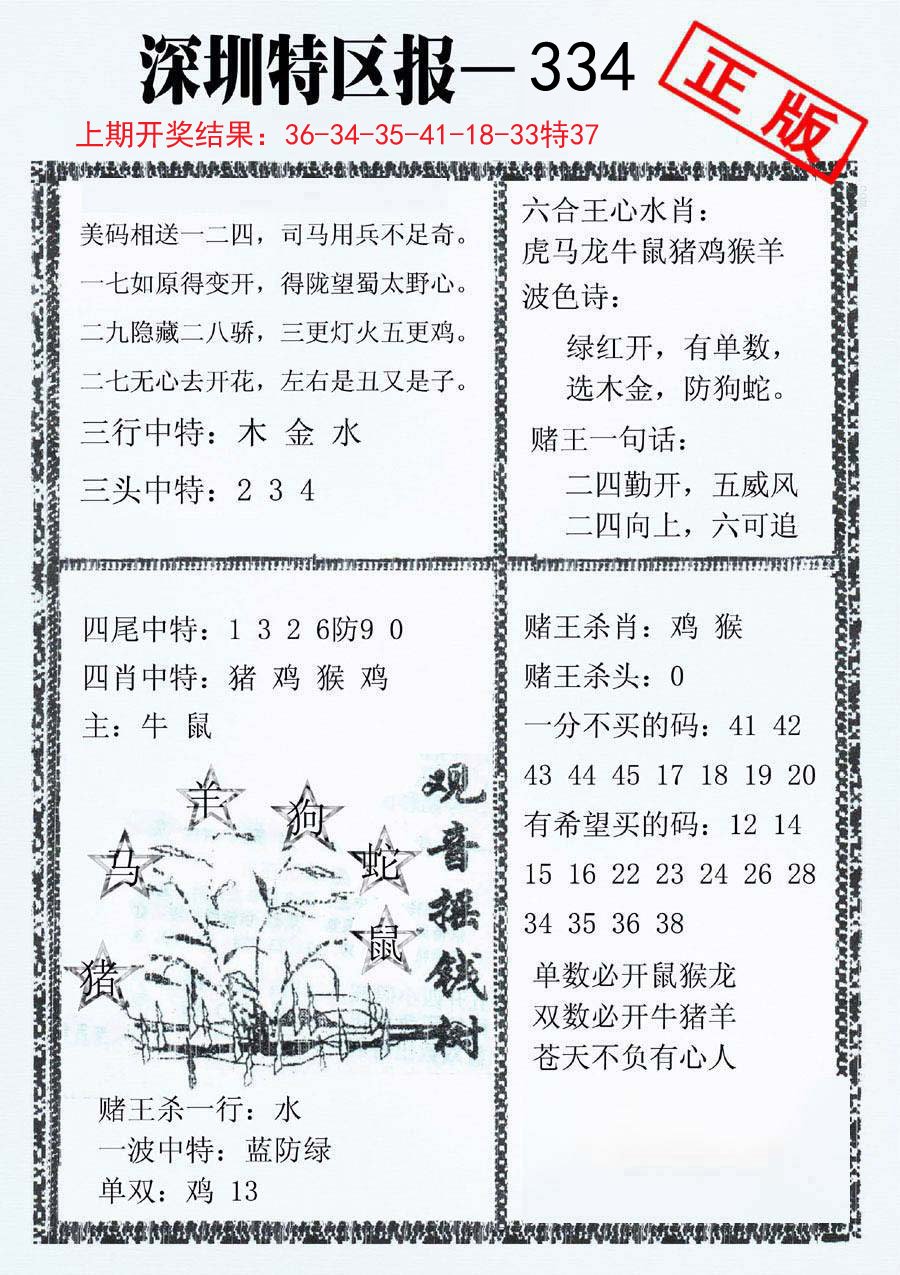 深圳特区报－334
正版
上期开奖结果：36-34-35-41-18-33特37
美码相送一二四，司马用兵不足奇。
一七如原得变开，得陇望蜀太野心。
二九隐藏二八骄，三更灯火五更鸡。
二七无心去开花，左右是丑又是子。
三行中特：木 金 水
三头中特：2 3 4
六合王心水肖：
虎马龙牛鼠猪鸡猴羊
波色诗：
绿红开，有单数，
选木金，防狗蛇。
赌王一句话：
二四勤开，五威风
二四向上，六可追
四尾中特：1 3 2 6防9 0
四肖中特：猪 鸡 猴 鸡
主：牛 鼠
羊
狗
马
蛇
鼠
猪
观音摇钱树
赌王杀一行：水
一波中特：蓝防绿
单双：鸡 13
赌王杀肖：鸡 猴
赌王杀头：0
一分不买的码：41 42
43 44 45 17 18 19 20
有希望买的码：12 14
15 16 22 23 24 26 28
34 35 36 38
单数必开鼠猴龙
双数必开牛猪羊
苍天不负有心人